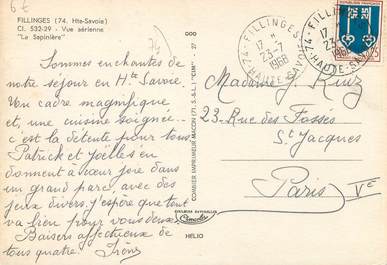 FILLINGES (74. Hte-Savoie)
Cl. 532-39 - Vue aérienne
"La Sapinière"
74
Sommes enchantés de
notre séjour en Hte Savoie.
Un cadre magnifique
et, une cuisine soignée..
c'est la détente pour tous
Patrick et Joëlle s'en
donnent à cœur joie dans
un grand parc, avec des
jeux divers. J'espère que tout
va bien pour vous deux.
Baisers affectueux de
tous quatre. Irène
DOO 27
COMBIER IMPRIMEUR MACON (71. S.-&-L.) "CIM"
COULEURS NATURELLES
Combier
HELIO
74 - FILLINGES
17 H
23-7
1968
HAUTE-SAVOIE
74 - FILLINGES
17
23-7
1968
HAUTE-SAVOIE
Madame J. Ruiz
23 Rue des Fossés
St Jacques
Paris Ve